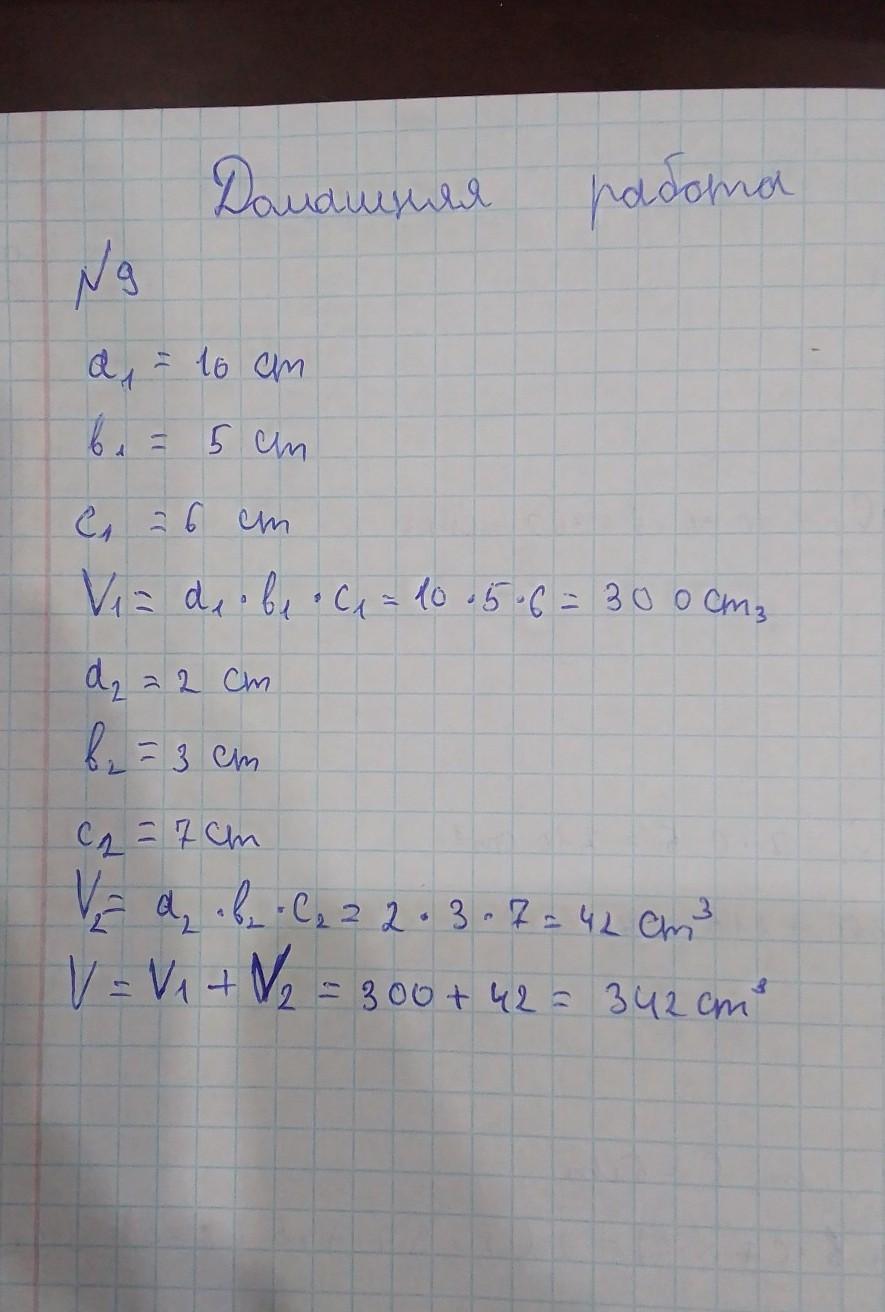 Домашняя работа
№9
a₁ = 10 cm
b₁ = 5 cm
c₁ = 6 cm
V₁ = a₁ · b₁ · c₁ = 10 · 5 · 6 = 300 cm₃
a₂ = 2 cm
b₂ = 3 cm
c₂ = 7 cm
V₂ = a₂ · b₂ · c₂ = 2 · 3 · 7 = 42 cm³
V = V₁ + V₂ = 300 + 42 = 342 cm³